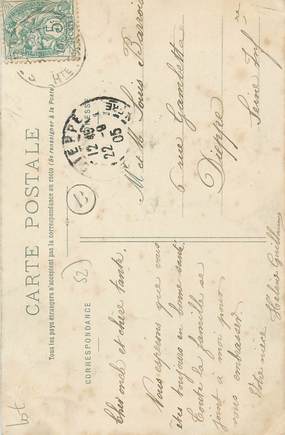 CARTE POSTALE
Tous les pays étrangers n'acceptent pas la correspondance au recto (Se renseigner à la Poste)
CORRESPONDANCE
ADRESSE
Cher oncle et chère tante.
Nous espérons que vous
êtes toujours en bonne santé
Toute la famille se
joint à moi pour
vous embrasser.
Votre nièce
Hélène
M et Me Louis Barrois
6 rue Gambetta
Dieppe
Seine Infre
DIEPPE
12 45
22 -8
05
5
B
52